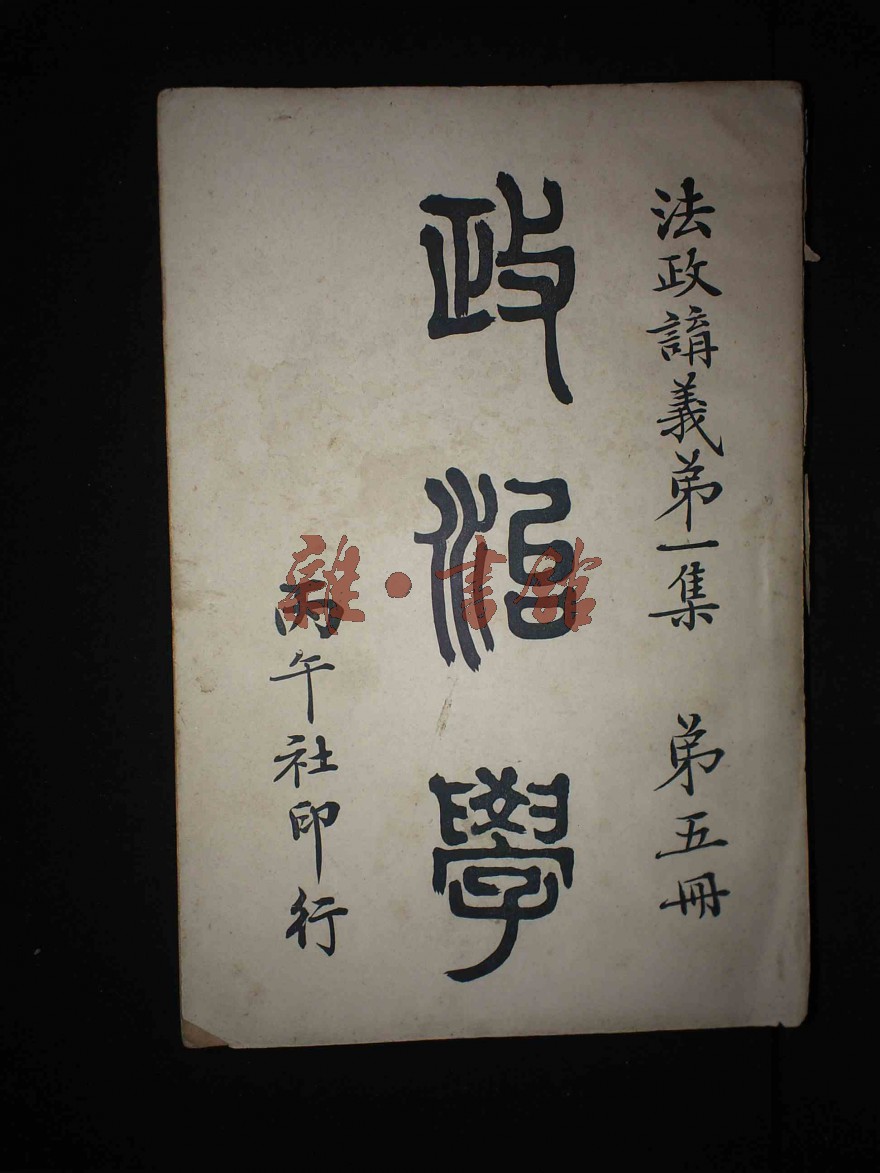 法政講義弟一集 弟五冊
政治學
丙午社印行
雜·書館